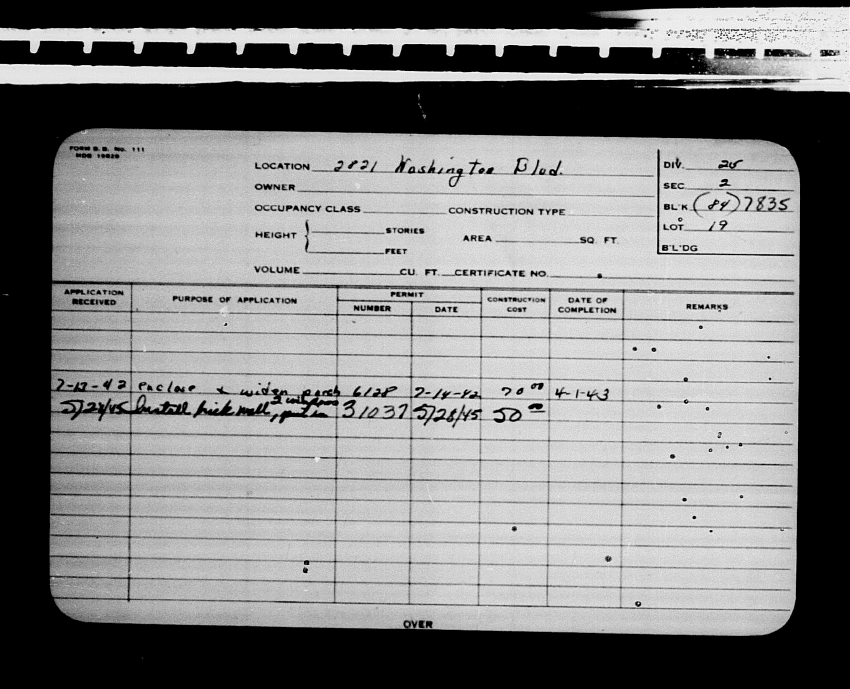 FORM B.B. No. 111
MDB 19829
LOCATION 2821 Washington Blvd.
OWNER
OCCUPANCY CLASS CONSTRUCTION TYPE
HEIGHT { STORIES
FEET
AREA SQ. FT.
VOLUME CU. FT. CERTIFICATE NO.
DIV. 25
SEC 2
BL'K (84) 7835
LOT 19
B'L'DG
APPLICATION RECEIVED PURPOSE OF APPLICATION PERMIT NUMBER DATE CONSTRUCTION COST DATE OF COMPLETION REMARKS
7-13-42 enclose & widen porch 6128 7-14-42 70 00 4-1-43
5/28/45 Install brick wall, put in 2 windows 31037 5/28/45 50 00
OVER